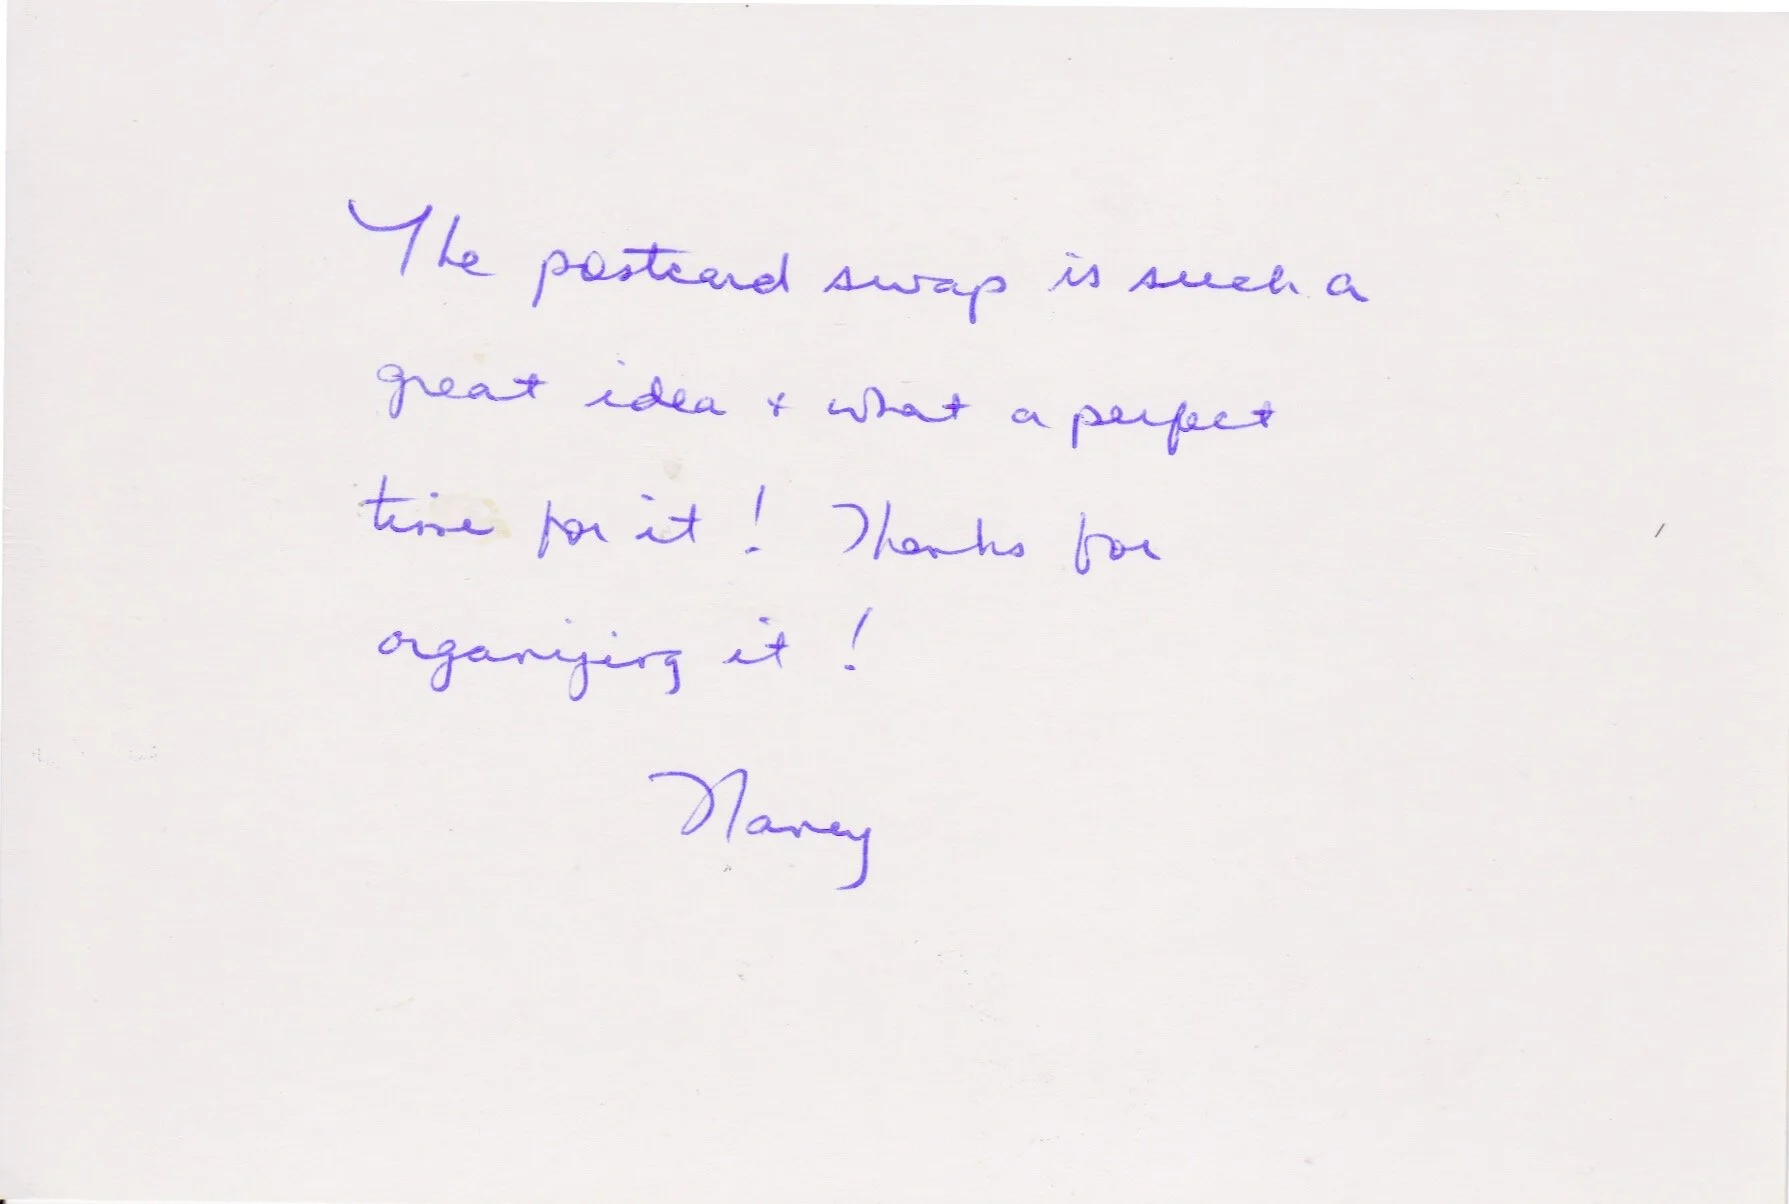 The postcard swap is such a
great idea + what a perfect
time for it! Thanks for
organizing it!
Nancy